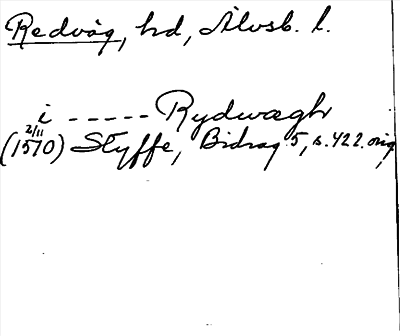 Redväg, hd, Älvsb. l.
i ----- Rydwægh
2/11
(1510) Styffe, Bidrag 5, s. 422. orig